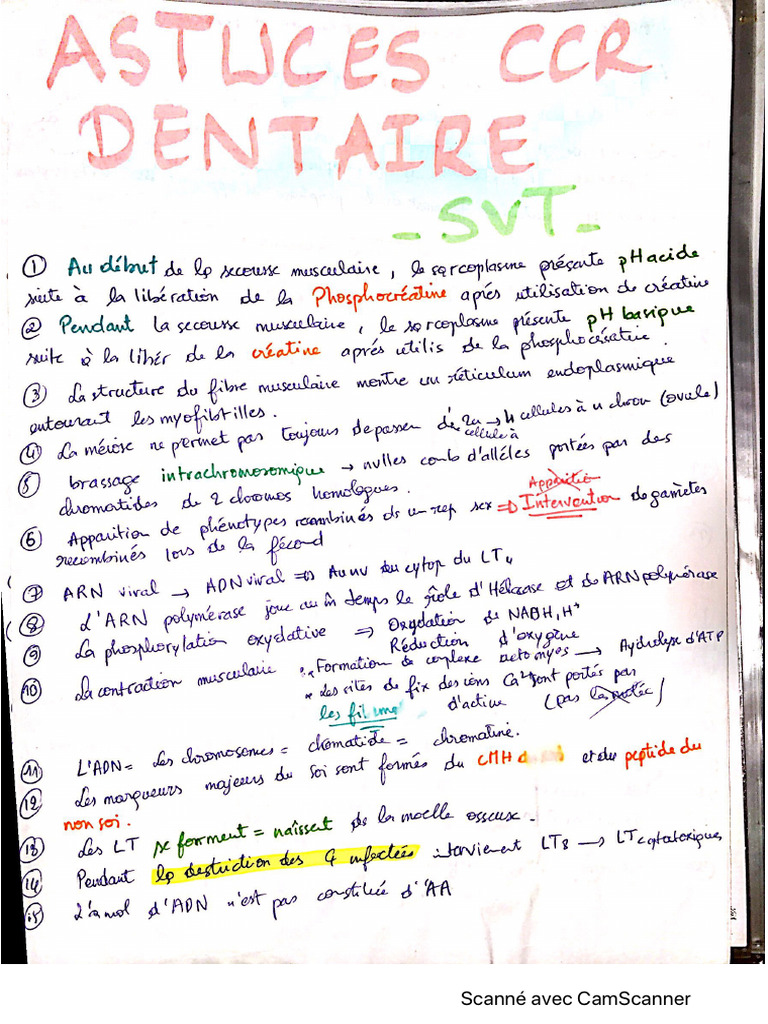 ASTUCES CCR
DENTAIRE
- SVT -
① Au début de la secousse musculaire, le sarcoplasme présente pH acide
suite à la libération de la Phosphocréatine aprés utilisation de créatine
② Pendant la secousse musculaire, le sarcoplasme présente pH basique
suite à la libér de la créatine aprés utilis de la phosphocréatine.
③ La structure du fibre musculaire montre un réticulum endoplasmique
entourant les myofibrilles.
④ La méiose ne permet pas toujours de passer d'1 cellule à 2n → 4 cellules à n chrom (ovule)
⑤ brassage intrachromosomique → nvlles comb d'allèles portées par des
chromatides de 2 chromos homologues.
⑥ Apparition de phénotypes recombinés ds un rep sex ⇒ Apparition Intervention de gamètes
recombinés lors de la fécond
⑦ ARN viral → ADN viral ⇒ Au nv du cytop du LT4
⑧ L'ARN polymérase joue au m temps le rôle d'Hélicase et de ARN polymérase
⑨ La phosphorylation oxydative ⇒ Oxydation de NADH,H+
Réduction d'oxygène
⑩ La contraction musculaire * Formation de complexe actomyos → Hydrolyse d'ATP
* Les sites de fix des ions Ca²⁺ sont portés par
les films d'actine (pas )
⑪ L'ADN = Les chromosomes = chromatide = chromatine.
⑫ Les marqueurs majeurs du soi sont formés du CMH et du peptide du
non soi.
⑬ Les LT se forment = naîssent de la moelle osseuse.
⑭ Pendant la destruction des infectées intervienent LT8 → LT cytotoxiques
⑮ L'a mol d'ADN n'est pas constituée d'AA
Scanné avec CamScanner